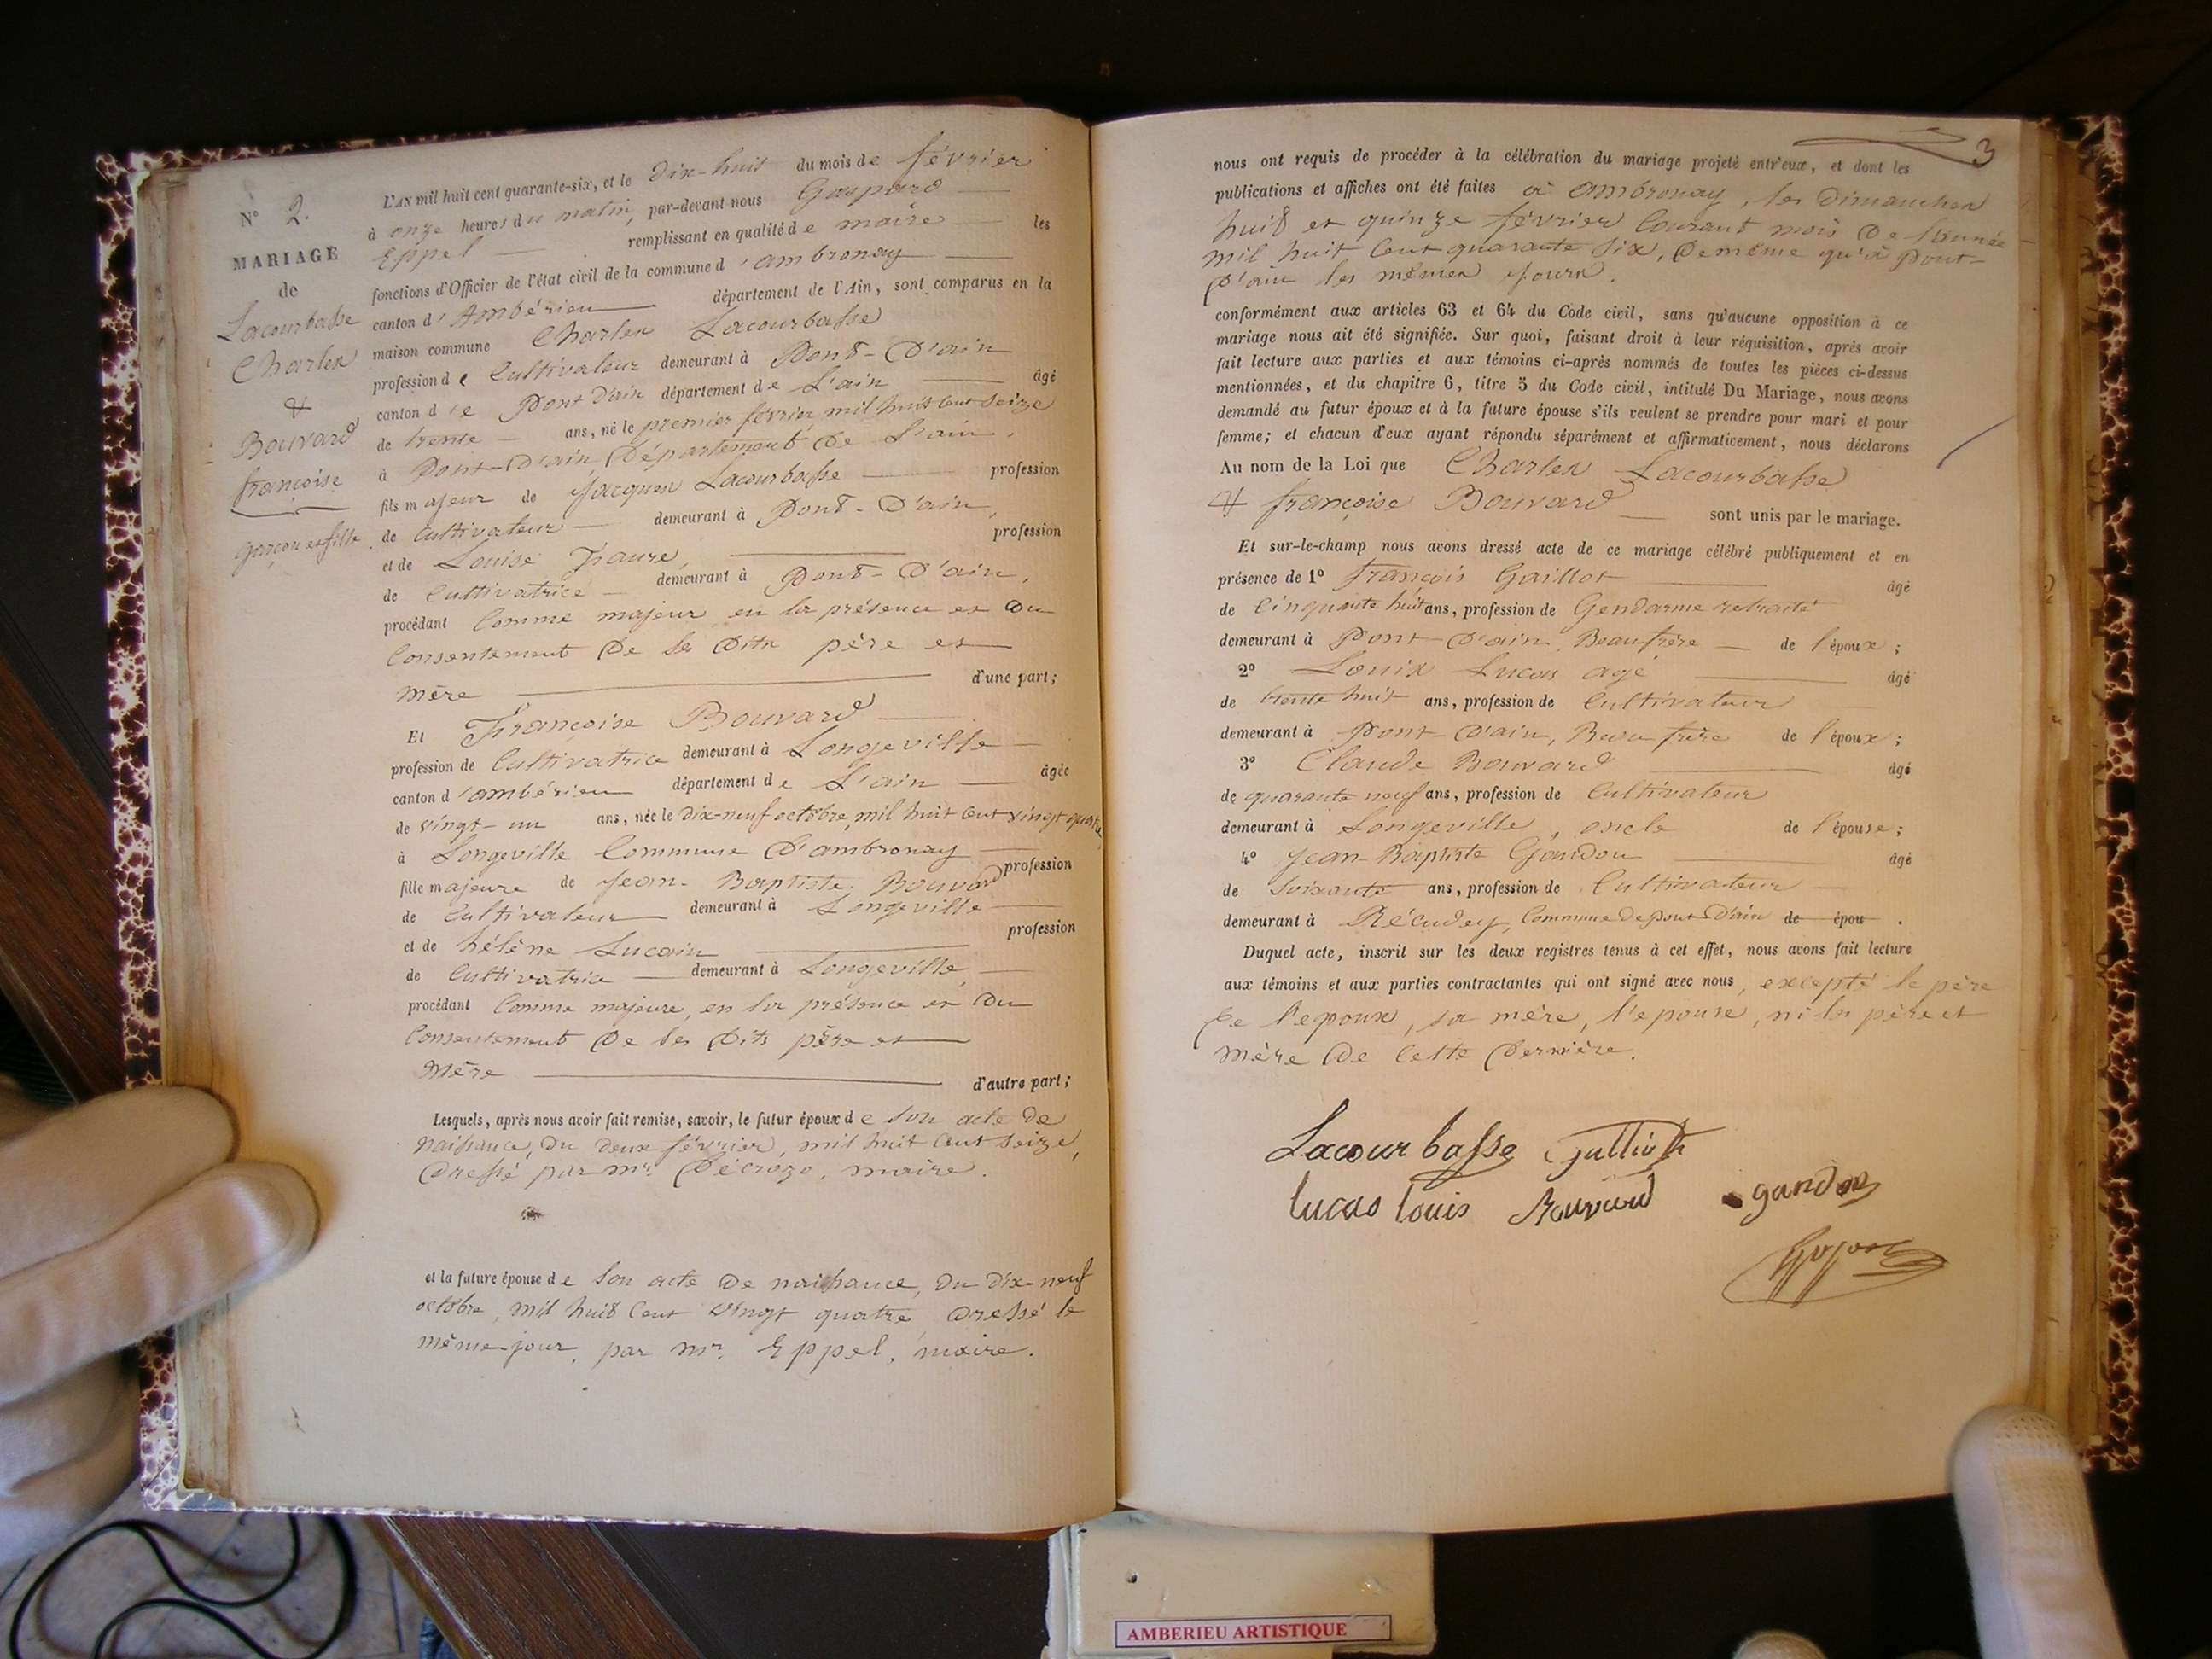 N° 2.
MARIAGE
de
Lacourbasse
Charles
&
Bouvard
françoise
garçon et fille
L'AN mil huit cent quarante-six, et le dix-huit du mois de février
à onze heures du matin, par-devant nous Gaspard
Eppel remplissant en qualité de maire les
fonctions d'Officier de l'état civil de la commune d'ambronay
canton d'Ambérieu département de l'Ain, sont comparus en la
maison commune Charles Lacourbasse
profession de Cultivateur demeurant à Pont-D'ain
canton de Pont D'ain département de L'ain âgé
de trente ans, né le premier février mil huit cent seize
à Pont-D'ain, Département De L'ain.
fils majeur de Jacques Lacourbasse profession
de Cultivateur demeurant à Pont-D'ain,
et de Louise profession
de Cultivatrice demeurant à Pont-D'ain,
procédant Comme majeur en la présence et Du
Consentement De ses Dits père et
mère d'une part;
Et Françoise Bouvard
profession de Cultivatrice demeurant à Longeville
canton d'ambérieu département de L'ain âgée
de vingt-un ans, née le dix-neuf octobre, mil huit cent vingt quatre
à Longeville Commune D'ambronay
fille majeure de Jean-Baptiste Bouvard profession
de Cultivateur demeurant à Longeville
et de hélène Lucain profession
de Cultivatrice demeurant à Longeville
procédant Comme majeure, en la présence et Du
Consentement De ses Dits père et
Mère d'autre part;
Lesquels, après nous avoir fait remise, savoir, le futur époux de son acte De
Naissance, Du Deux février, mil huit cent seize,
Dressé par mr. Décrozo, maire.
et la future épouse de Son acte De naissance, Du Dix-neuf
octobre, mil huit Cent vingt quatre Dressé le
même jour, par mr. Eppel, maire.
3
nous ont requis de procéder à la célébration du mariage projeté entr'eux, et dont les
publications et affiches ont été faites à Ambronay, les Dimanches
huit et quinze février Courant mois De l'année
mil huit Cent quarante six, De même qu'à Pont-
D'ain les mêmes jours.
conformément aux articles 63 et 64 du Code civil, sans qu'aucune opposition à ce
mariage nous ait été signifiée. Sur quoi, faisant droit à leur réquisition, après avoir
fait lecture aux parties et aux témoins ci-après nommés de toutes les pièces ci-dessus
mentionnées, et du chapitre 6, titre 5 du Code civil, intitulé Du Mariage, nous avons
demandé au futur époux et à la future épouse s'ils veulent se prendre pour mari et pour
femme; et chacun d'eux ayant répondu séparément et affirmativement, nous déclarons
Au nom de la Loi que Charles Lacourbasse
& françoise Bouvard sont unis par le mariage.
Et sur-le-champ nous avons dressé acte de ce mariage célébré publiquement et en
présence de 1° François Gaillot âgé
de Cinquante huit ans, profession de Gendarme retraité
demeurant à Pont-D'ain, Beau frère de l'époux;
2° Louis Lucas agé âgé
de trente huit ans, profession de Cultivateur
demeurant à Pont D'ain, Beau frère de l'époux;
3° Claude Bouvard âgé
de quarante neuf ans, profession de Cultivateur
demeurant à Longeville, oncle de l'épouse;
4° Jean-Baptiste Gandou âgé
de Soixante ans, profession de Cultivateur
demeurant à Récudey, Commune De pont D'ain de épou .
Duquel acte, inscrit sur les deux registres tenus à cet effet, nous avons fait lecture
aux témoins et aux parties contractantes qui ont signé avec nous, excepté le père
De l'epoux, sa mère, l'epouse, ni les père et
mère De Cette Dernière.
Lacourbasse
lucas louis Bouvard
AMBERIEU ARTISTIQUE